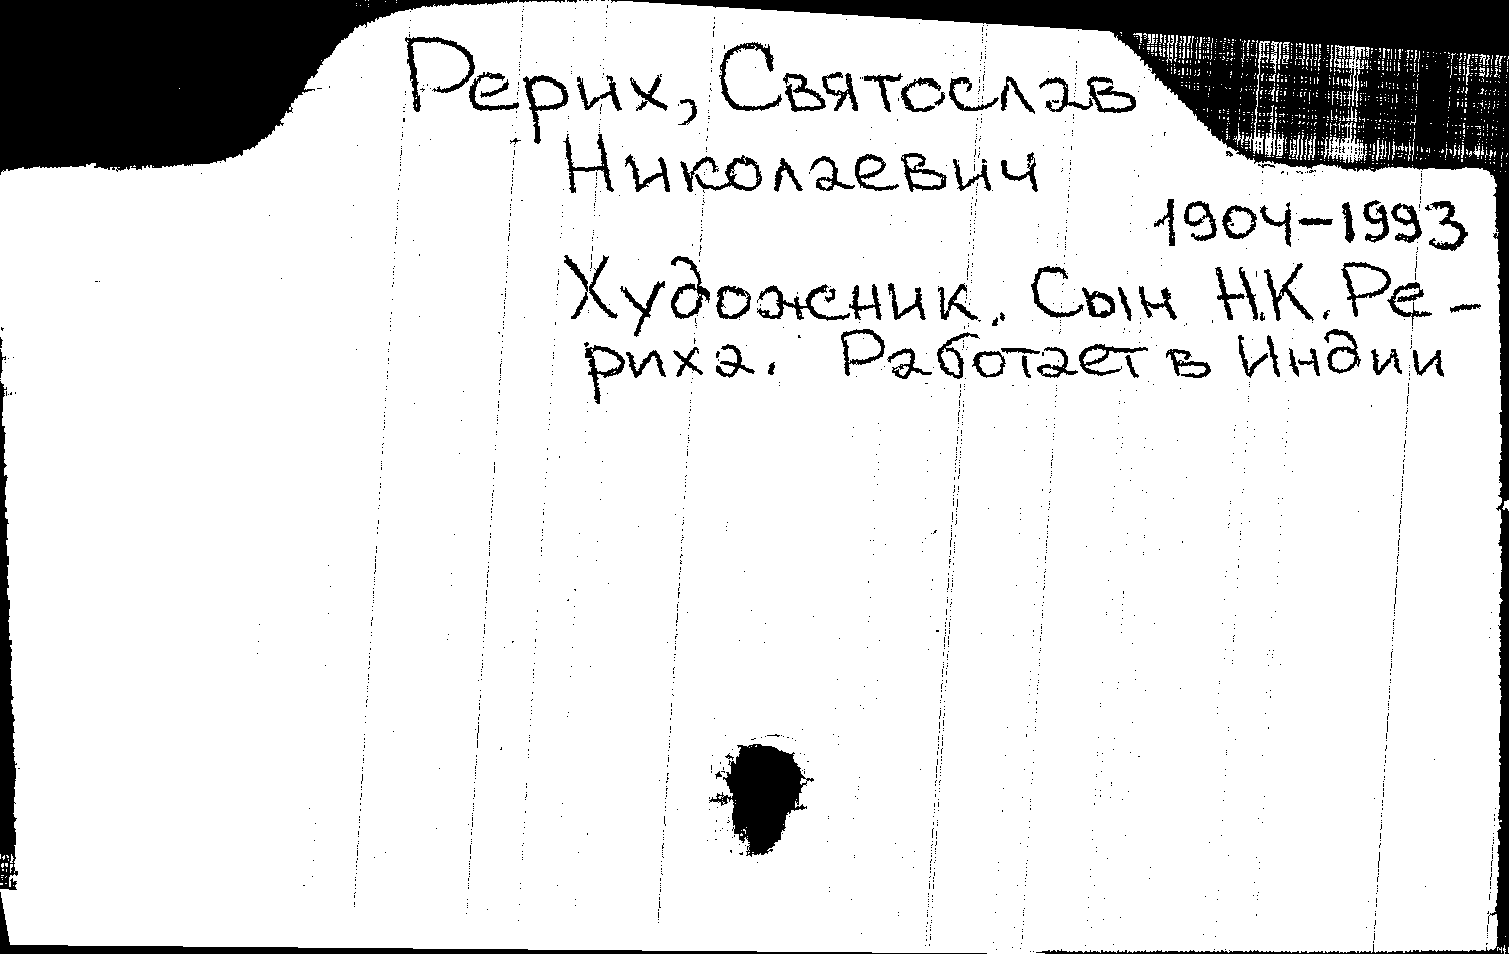 Рерих, Святослав
Николаевич
1904-1993
Художник. Сын Н.К. Ре-
риха. Работает в Индии